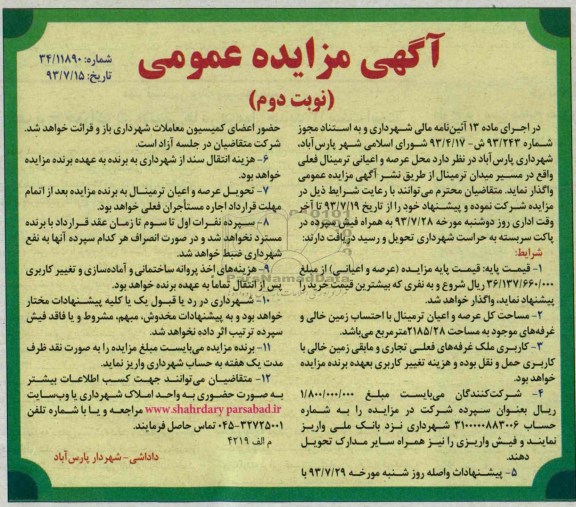 آگهی مزایده عمومی
(نوبت دوم)
شماره: ۳۴/۱۱۸۹۰
تاریخ: ۹۳/۷/۱۵
در اجرای ماده ۱۳ آئین‌نامه مالی شهرداری و به استناد مجوز
شماره ۹۳/۲۴۳ ش- ۹۳/۴/۱۷ شورای اسلامی شهر پارس‌آباد،
شهرداری پارس‌آباد در نظر دارد محل عرصه و اعیانی ترمینال فعلی
واقع در مسیر میدان ترمینال از طریق نشر آگهی مزایده عمومی
واگذار نماید. متقاضیان محترم می‌توانند با رعایت شرایط ذیل در
مزایده شرکت نموده و پیشنهاد خود را از تاریخ ۹۳/۷/۱۹ تا آخر
وقت اداری روز دوشنبه مورخه ۹۳/۷/۲۸ به همراه فیش سپرده در
پاکت سربسته به حراست شهرداری تحویل و رسید دریافت دارند:
شرایط:
۱- قیمت پایه: قیمت پایه مزایده (عرصه و اعیانی) از مبلغ
۳۶/۱۳۷/۶۶۰/۰۰۰ ریال شروع و به نفری که بیشترین قیمت خرید را
پیشنهاد نماید، واگذار خواهد شد.
۲- مساحت کل عرصه و اعیان ترمینال با احتساب زمین خالی و
غرفه‌های موجود به مساحت ۲۱۸۵/۲۸ مترمربع می‌باشد.
۳- کاربری ملک غرفه‌های فعلی تجاری و مابقی زمین خالی با
کاربری حمل و نقل بوده و هزینه تغییر کاربری بعهده برنده مزایده
خواهد بود.
۴- شرکت‌کنندگان می‌بایست مبلغ ۱/۸۰۰/۰۰۰/۰۰۰
ریال بعنوان سپرده شرکت در مزایده را به شماره
حساب ۳۱۰۰۰۰۰۸۸۳۰۰۶ شهرداری نزد بانک ملی واریز
نمایند و فیش واریزی را نیز همراه سایر مدارک تحویل
دهند.
۵- پیشنهادات واصله روز شنبه مورخه ۹۳/۷/۲۹ با
حضور اعضای کمیسیون معاملات شهرداری باز و قرائت خواهد شد.
شرکت متقاضیان در جلسه آزاد است.
۶- هزینه انتقال سند از شهرداری به برنده به عهده برنده مزایده
خواهد بود.
۷- تحویل عرصه و اعیان ترمینال به برنده مزایده بعد از اتمام
مهلت قرارداد اجاره مستأجران فعلی خواهد بود.
۸- سپرده نفرات اول تا سوم تا زمان عقد قرارداد با برنده
مسترد نخواهد شد و در صورت انصراف هر کدام سپرده آنها به نفع
شهرداری ضبط خواهد شد.
۹- هزینه‌های اخذ پروانه ساختمانی و آماده‌سازی و تغییر کاربری
پس از انتقال تماما به عهده برنده خواهد بود.
۱۰- شهرداری در رد یا قبول یک یا کلیه پیشنهادات مختار
خواهد بود و به پیشنهادات مخدوش، مبهم، مشروط و یا فاقد فیش
سپرده ترتیب اثر داده نخواهد شد.
۱۱- برنده مزایده می‌بایست مبلغ مزایده را به صورت نقد ظرف
مدت یک هفته به حساب شهرداری واریز نماید.
۱۲- متقاضیان می‌توانند جهت کسب اطلاعات بیشتر
به صورت حضوری به واحد املاک شهرداری یا وب‌سایت
www.shahrdary parsabad.ir مراجعه و یا با شماره تلفن
۰۴۵-۳۲۷۲۵۰۰۱ تماس حاصل فرمایند.
م الف ۴۲۱۹
داداشی- شهردار پارس‌آباد